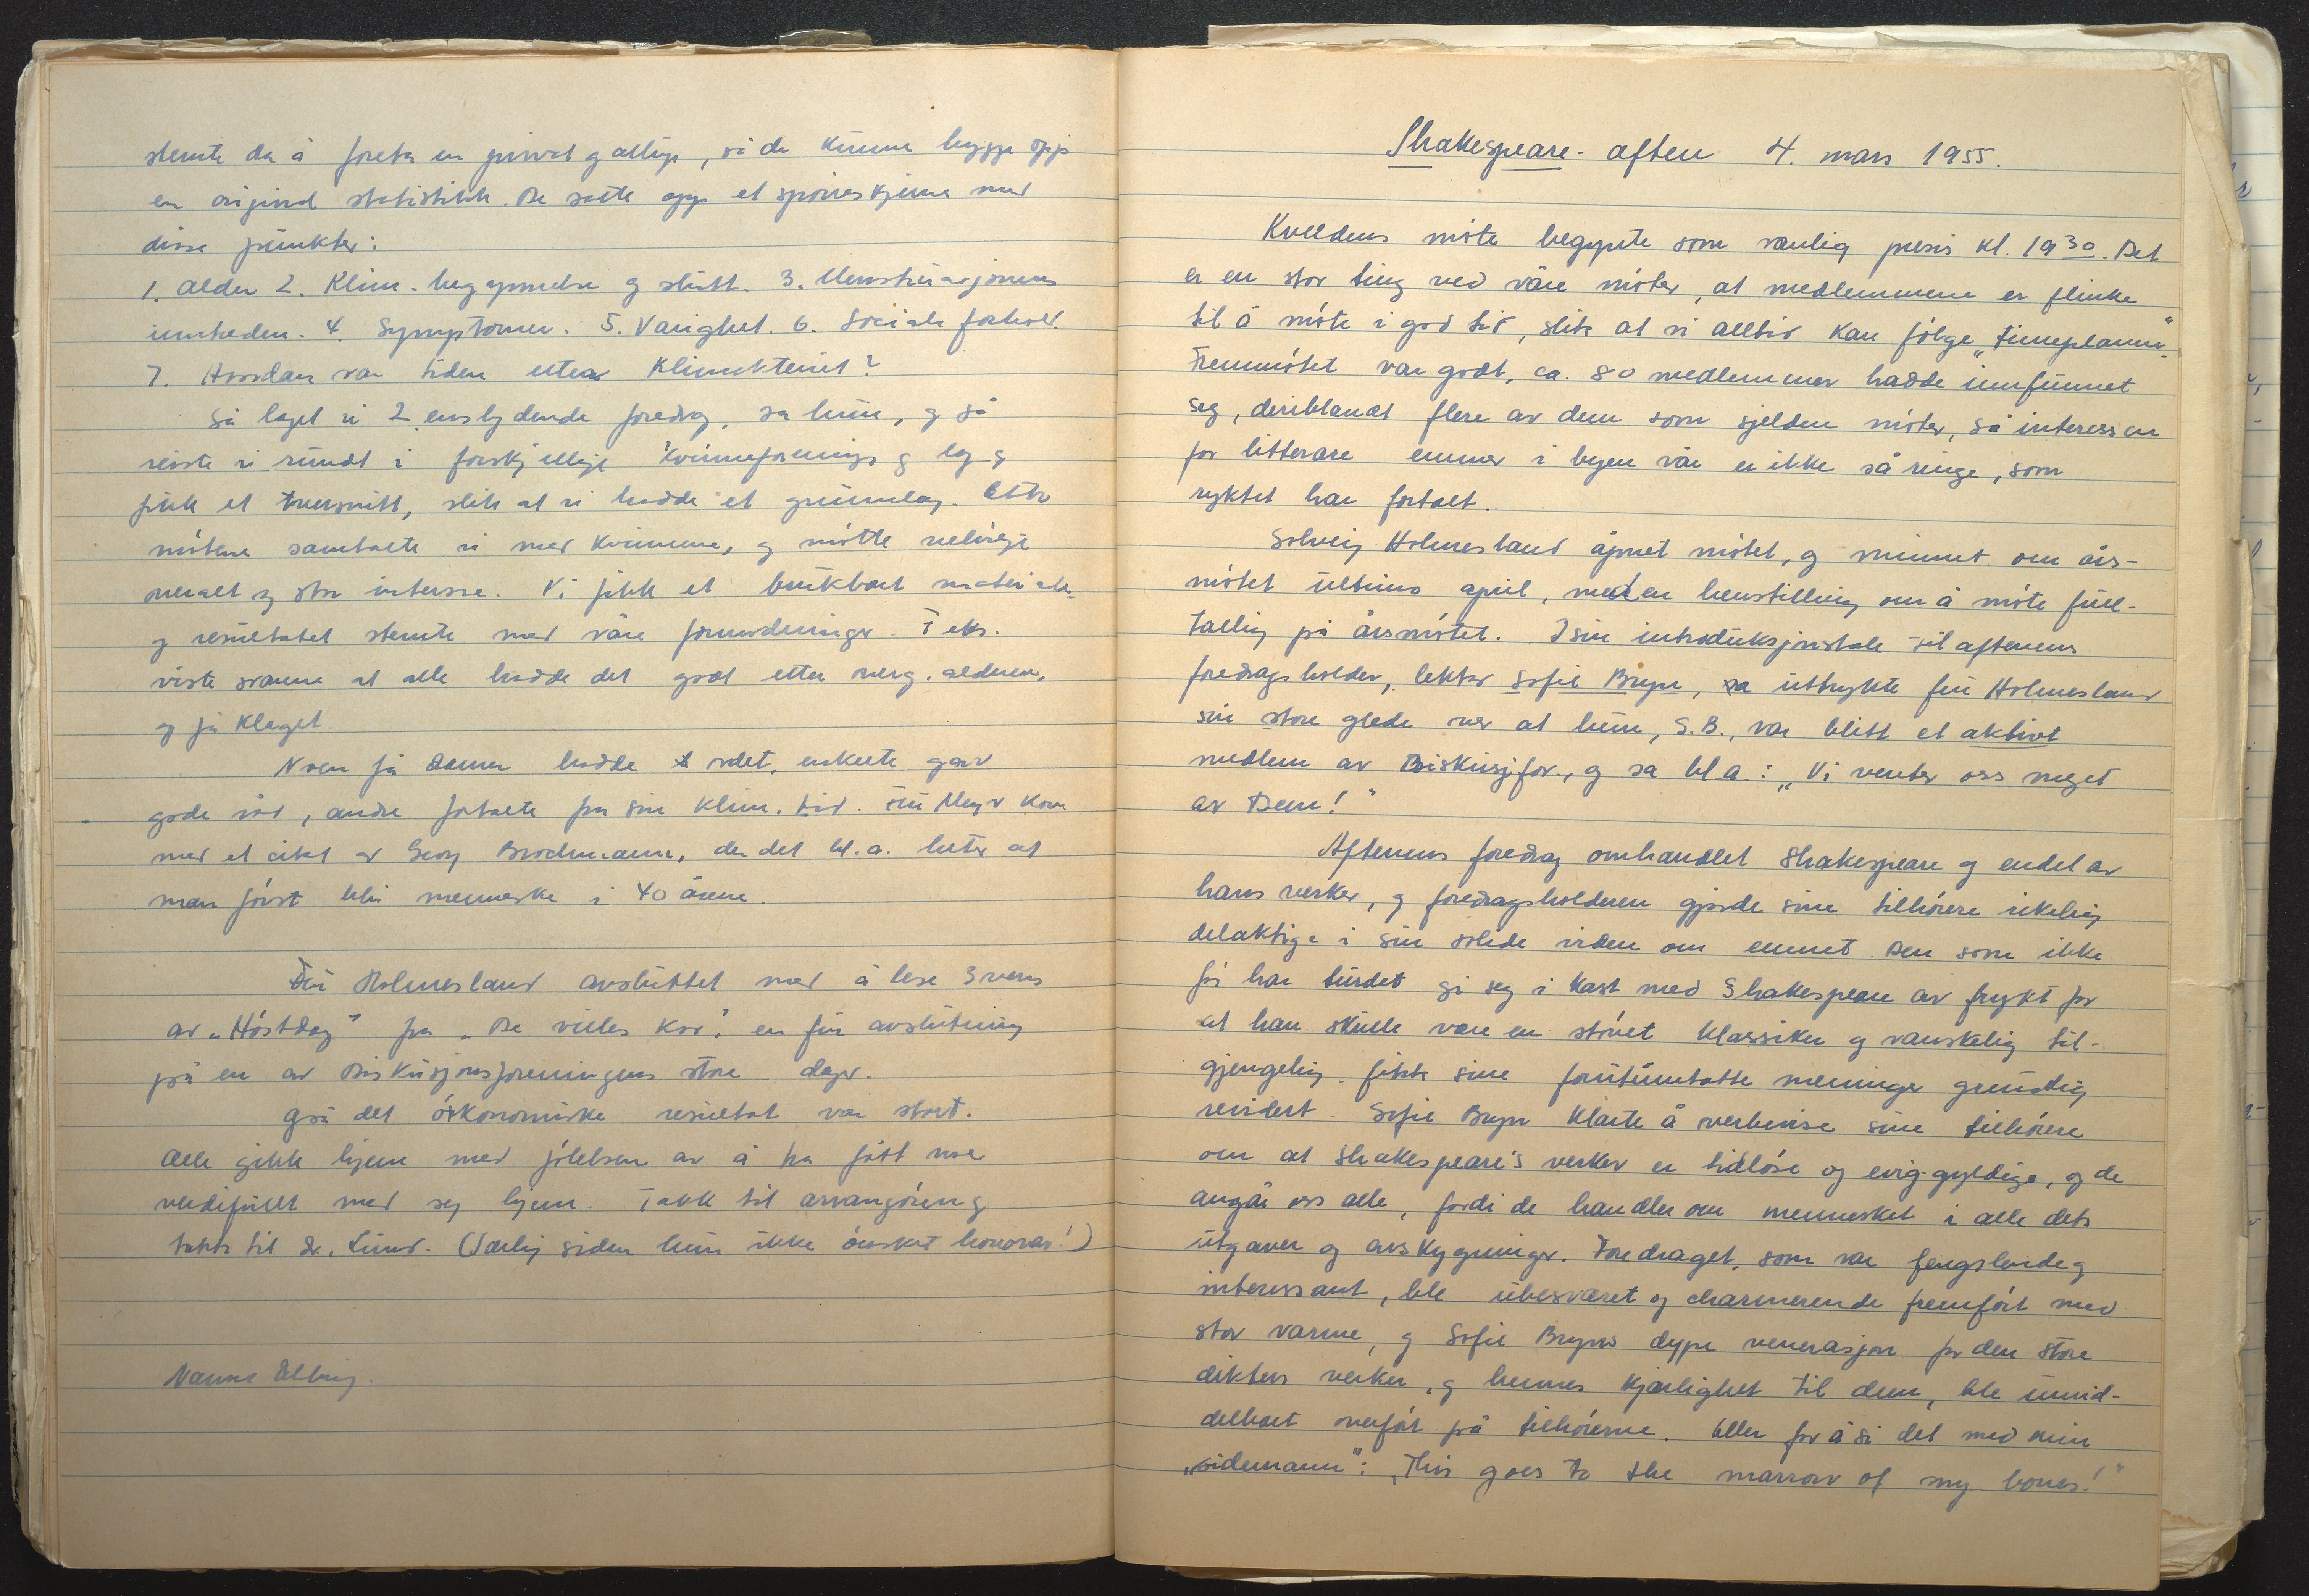 stemte da å foreta en privat gallup, så de kunne bygge opp
en original statistikk. De satte opp et spørreskjema med
disse punkter:
1. Alder 2. Klim. begynnelse og slutt. 3. Menstruasjonens
inntreden. 4. Symptomer. 5. Varighet. 6. Sociale forhold.
7. Hvordan var tiden etter Klimakteriet?
Så laget vi 2 enslydende foredrag, sa hun, og så
reiste vi rundt i forskjellige kvinneforenings og lag og
fikk et tversnitt, slik at vi hadde et grunnlag. Etter
møtene samtalte vi med kvinnene, og møtte velvilje
overalt og stor interesse. Vi fikk et brukbart materiale
og resultatet stemte med våre formodninger. F. eks.
viste svarene at alle hadde det godt etter overg. alderen,
og få klaget.
Noen få damer hadde ordet, enkelte gav
gode råd, andre fortalte fra sin klim. tid. Fru Meyer kom
med et citat av Georg Brochmann, der det bl.a. heter at
man først blir menneske i 40 årene.
Fru Holmesland avsluttet med å lese 3 vers
av „Høstdag" fra „De villes kor", en fin avslutning
på en av Diskusjonsforeningens store dager.
Også det økonomiske resultat var stort.
Alle gikk hjem med følelsen av å ha fått noe
verdifullt med seg hjem. Takk til arrangøren og
takk til dr. Lund. (Særlig siden hun ikke ønsket honorar!)
Nanna Ebbing.
Shakespeare-aften 4. mars 1955.
Kveldens møte begynte som vanlig presis kl. 19 30. Det
er en stor ting ved våre møter, at medlemmene er flinke
til å møte i god tid, slik at vi alltid kan følge „timeplanen".
Fremmøtet var godt, ca. 80 medlemmer hadde innfunnet
seg, deriblandt flere av dem som sjelden møter, så interessen
for litterære emner i byen vår er ikke så ringe, som
ryktet har fortalt.
Solveig Holmesland åpnet møtet, og minnet om års-
møtet ultimo april, med en henstilling om å møte full-
tallig på årsmøtet. I sin introduksjonstale til aftenens
foredragsholder, lektor Sofie Bryn, uttrykte fru Holmesland
sin store glede over at hun, S.B., var blitt et aktivt
medlem av Diskusjfor., og sa bl a: „Vi venter oss meget
av Dem!"
Aftenens foredrag omhandlet Shakespeare og endel av
hans verker, og foredragsholderen gjorde sine tilhørere rikelig
delaktige i sin solide viden om emnet. Den som ikke
før har turdet gi seg i kast med Shakespeare av frykt for
at han skulle være en støvet klassiker og vanskelig til-
gjengelig fikk sine forutinntatte meninger grundig
revidert. Sofie Bryn klarte å overbevise sine tilhørere
om at Shakespeare's verker er tidløse og evig-gyldige, og de
angår oss alle, fordi de handler om mennesket i alle dets
utgaver og avskygninger. Foredraget, som var fengslende og
interessant, ble ubesværet og charmerende fremført med
stor varme, og Sofie Bryns dype venerasjon for den store
dikters verker, og hennes kjærlighet til dem, ble umid-
delbart overført på tilhørerne. Eller for å si det med min
„sidemann": „This goes to the marrow of my bones!"